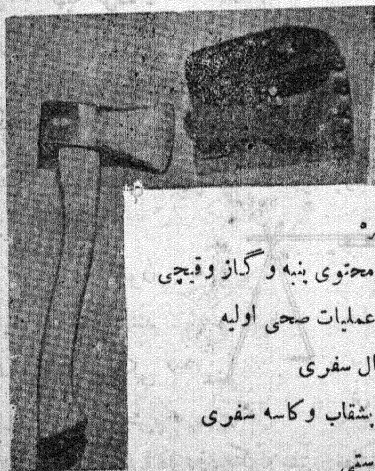 محتوی پنبه و گاز و قیچی
عملیات صحی اولیه
ال سفری
بشقاب و کاسه سفری
ستی